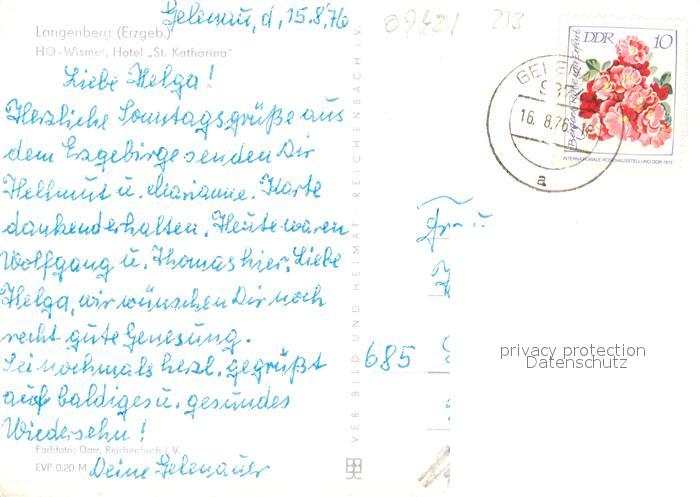 Gelenau, d, 15.8.76
Langenberg (Erzgeb.)
HO-Wismut, Hotel „St. Katharina"
Liebe Helga!
Herzliche Sonntagsgrüße aus
dem Erzgebirge senden Dir
Hellmut u. Marianne. Karte
dankend erhalten. Heute waren
Wolfgang u. Thomas hier. Liebe
Helga, wir wünschen Dir noch
recht gute Genesung.
Sei nochmals herzl. gegrüßt
auf baldiges u. gesundes
Wiedersehn!
Farbfoto: Darr, Reichenbach i. V.
EVP 0.20 M
Deine Gelenauer
VEB BILD UND HEIMAT REICHENBACH i. V.
09421
DDR 10
INTERNATIONALE ROSENAUSSTELLUNG DDR 1972
16. 8. 76
a
Frau
685
privacy protection
Datenschutz